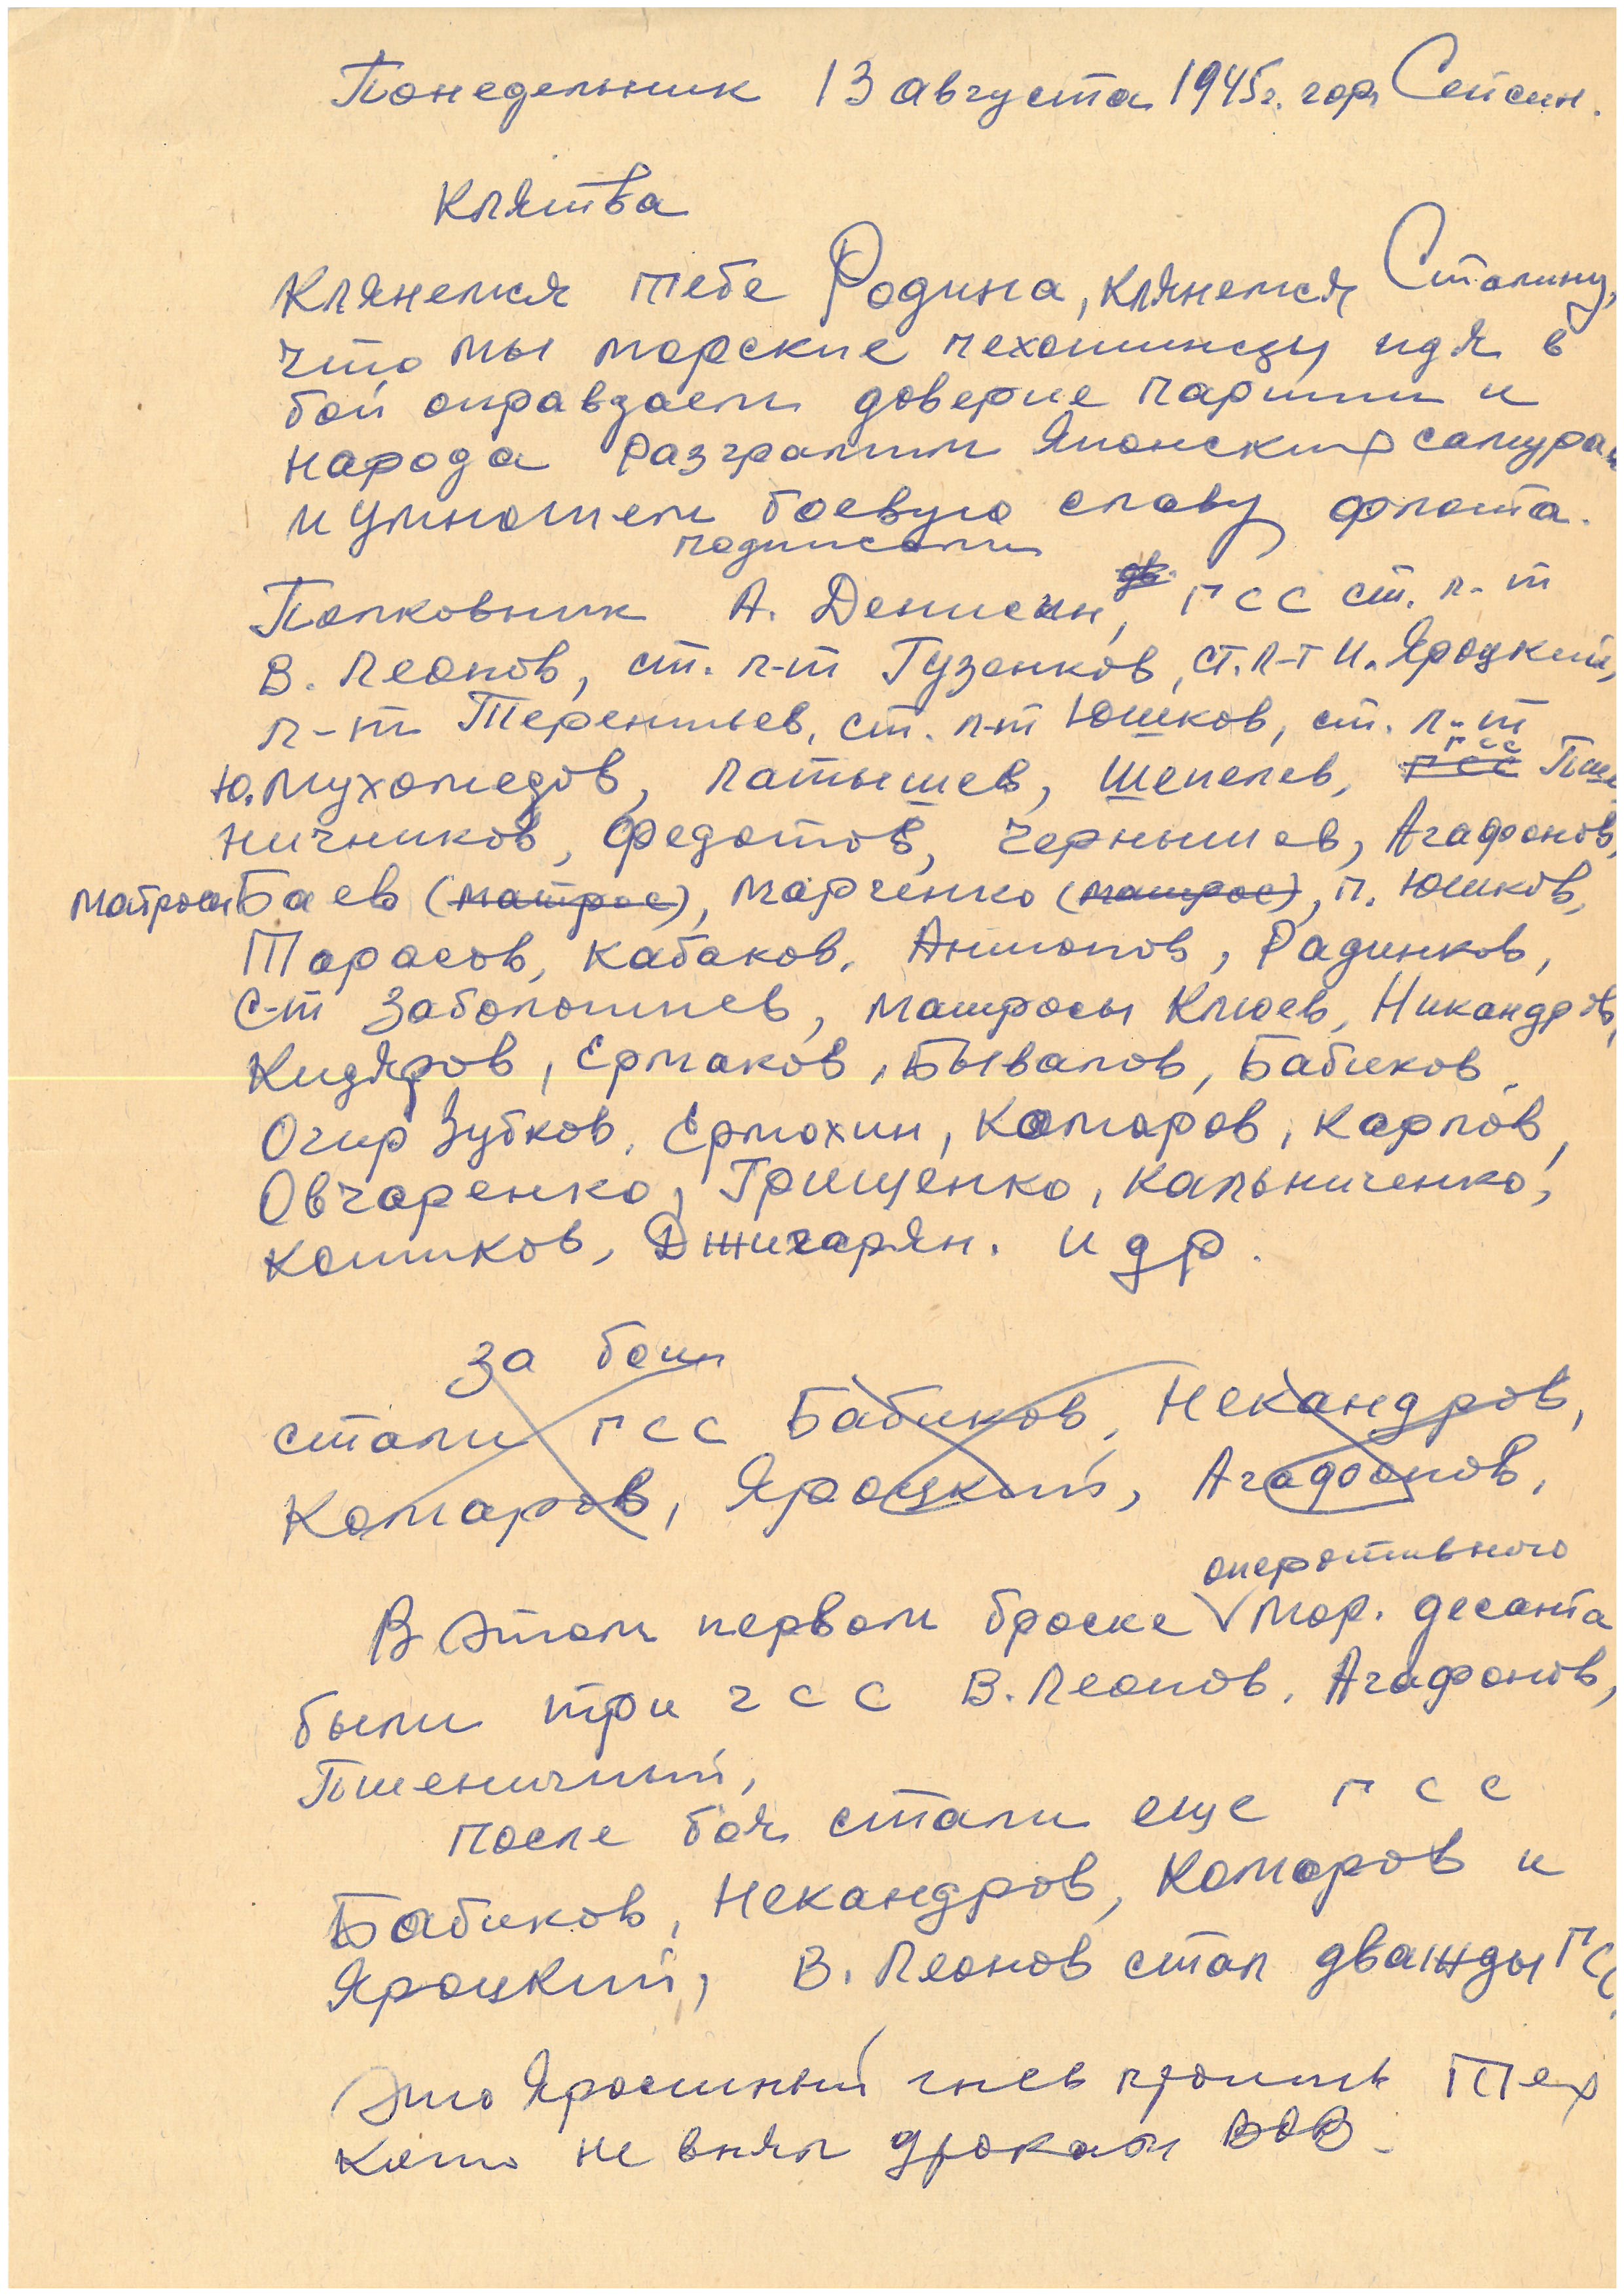 Понедельник 13 августа 1945г. гор Сейсин.
Клятва
Клянемся тебе Родина, клянемся Сталину,
что мы морские пехотинцы идя в
бой оправдаем доверие партии и
народа разгромим Японских самураи
и умножим боевую славу флота.
подписали
Полковник А. Денисин, ГСС ст. л-т
В. Леонов, ст. л-т Гузенков, ст. л-т И. Яроцкий,
л-т Терентьев, ст. л-т Юшков, ст. л-т
Ю. Мухомедов, Латышев, Шепелев, ГСС Пше
ничников, Федотов, Чернышев, Агафонов,
матросы Баев (матрос), Марченко (матрос), п. Юшков,
Тарасов, Кабаков, Антонов, Радинков,
С-т Заболотнев, матросы Клюев, Никандров,
Кидяров, Ермаков, Бывалов, Бабиков,
Очир Зубков, Ермохин, Комаров, Карпов,
Овчаренко, Грищенко, Кальниченко,
Кошков, Джигарян. и др.
за бои
стали ГСС Бабиков, Некандров,
Комаров, Яроцкий, Агафонов,
оперативного
В этом первом броске мор. десанта
были три гсс В. Леонов, Агафонов,
Пшеничный,
после боя стали еще ГСС
Бабиков, Некандров, Комаров и
Яроцкий, В. Леонов стал дважды ГСС
Это Яростный гнев против Тех
кто не внял урокам ВОВ.